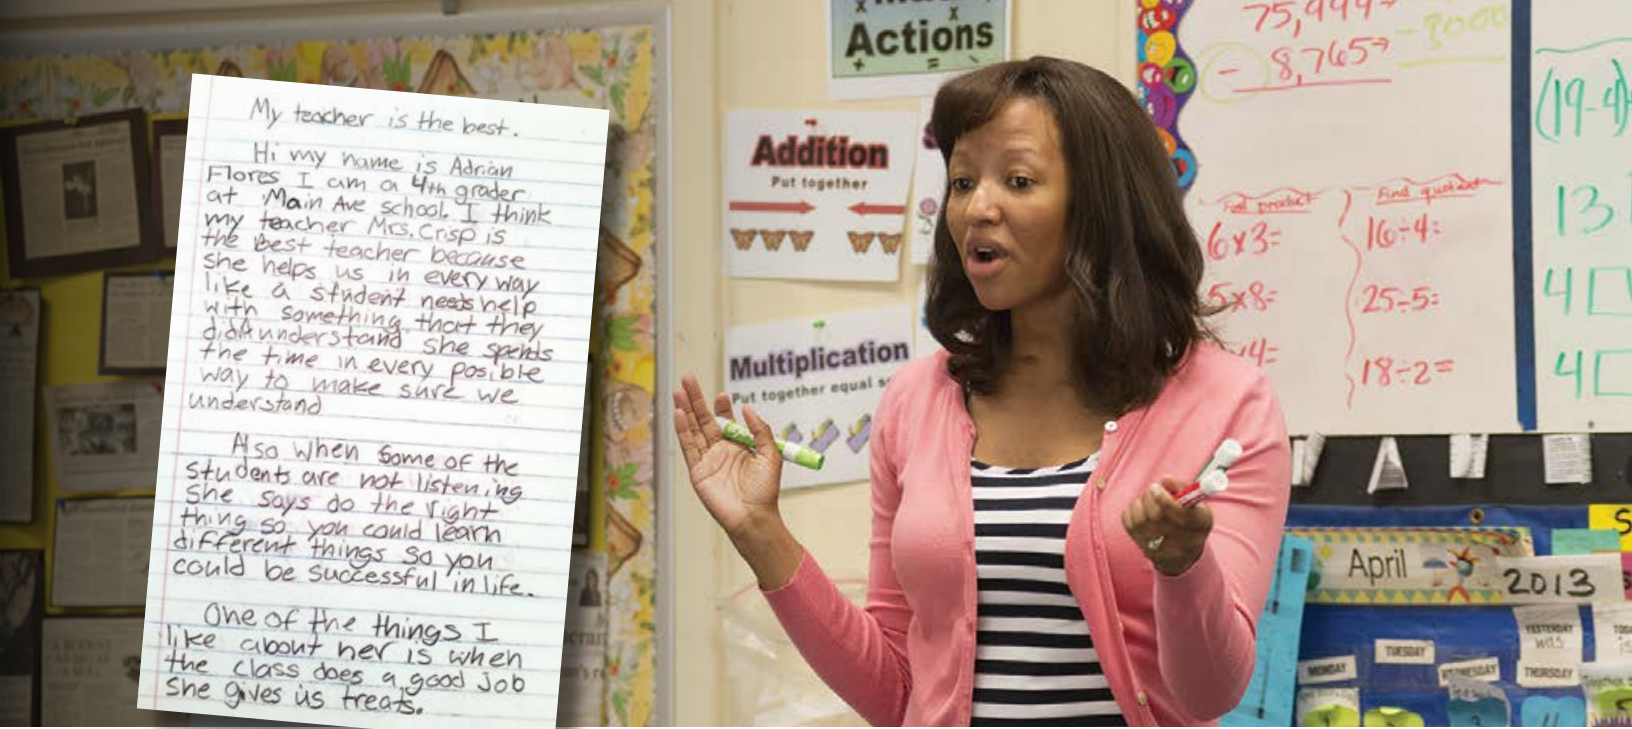 My teacher is the best.
Hi my name is Adrian
Flores I am a 4th grader
at Main Ave school. I think
my teacher Mrs. Crisp is
the best teacher because
she helps us in every way
like a student needs help
with something that they
didnt understand she spends
the time in every posible
way to make sure we
understand
Also when some of the
students are not listening
she says do the right
thing so you could learn
different things so you
could be successful in life.
One of the things I
like about her is when
the class does a good job
she gives us treats.
Actions
Addition
Put together
Multiplication
Put together equal
75,999→
- 8,765→
Find product
6x3=
5x8=
x4=
Find quotient
16÷4=
25÷5=
18÷2=
(19-4)
13
4
4
April
2013
YESTERDAY
was
MONDAY
TUESDAY
WEDNESDAY
THURSDAY